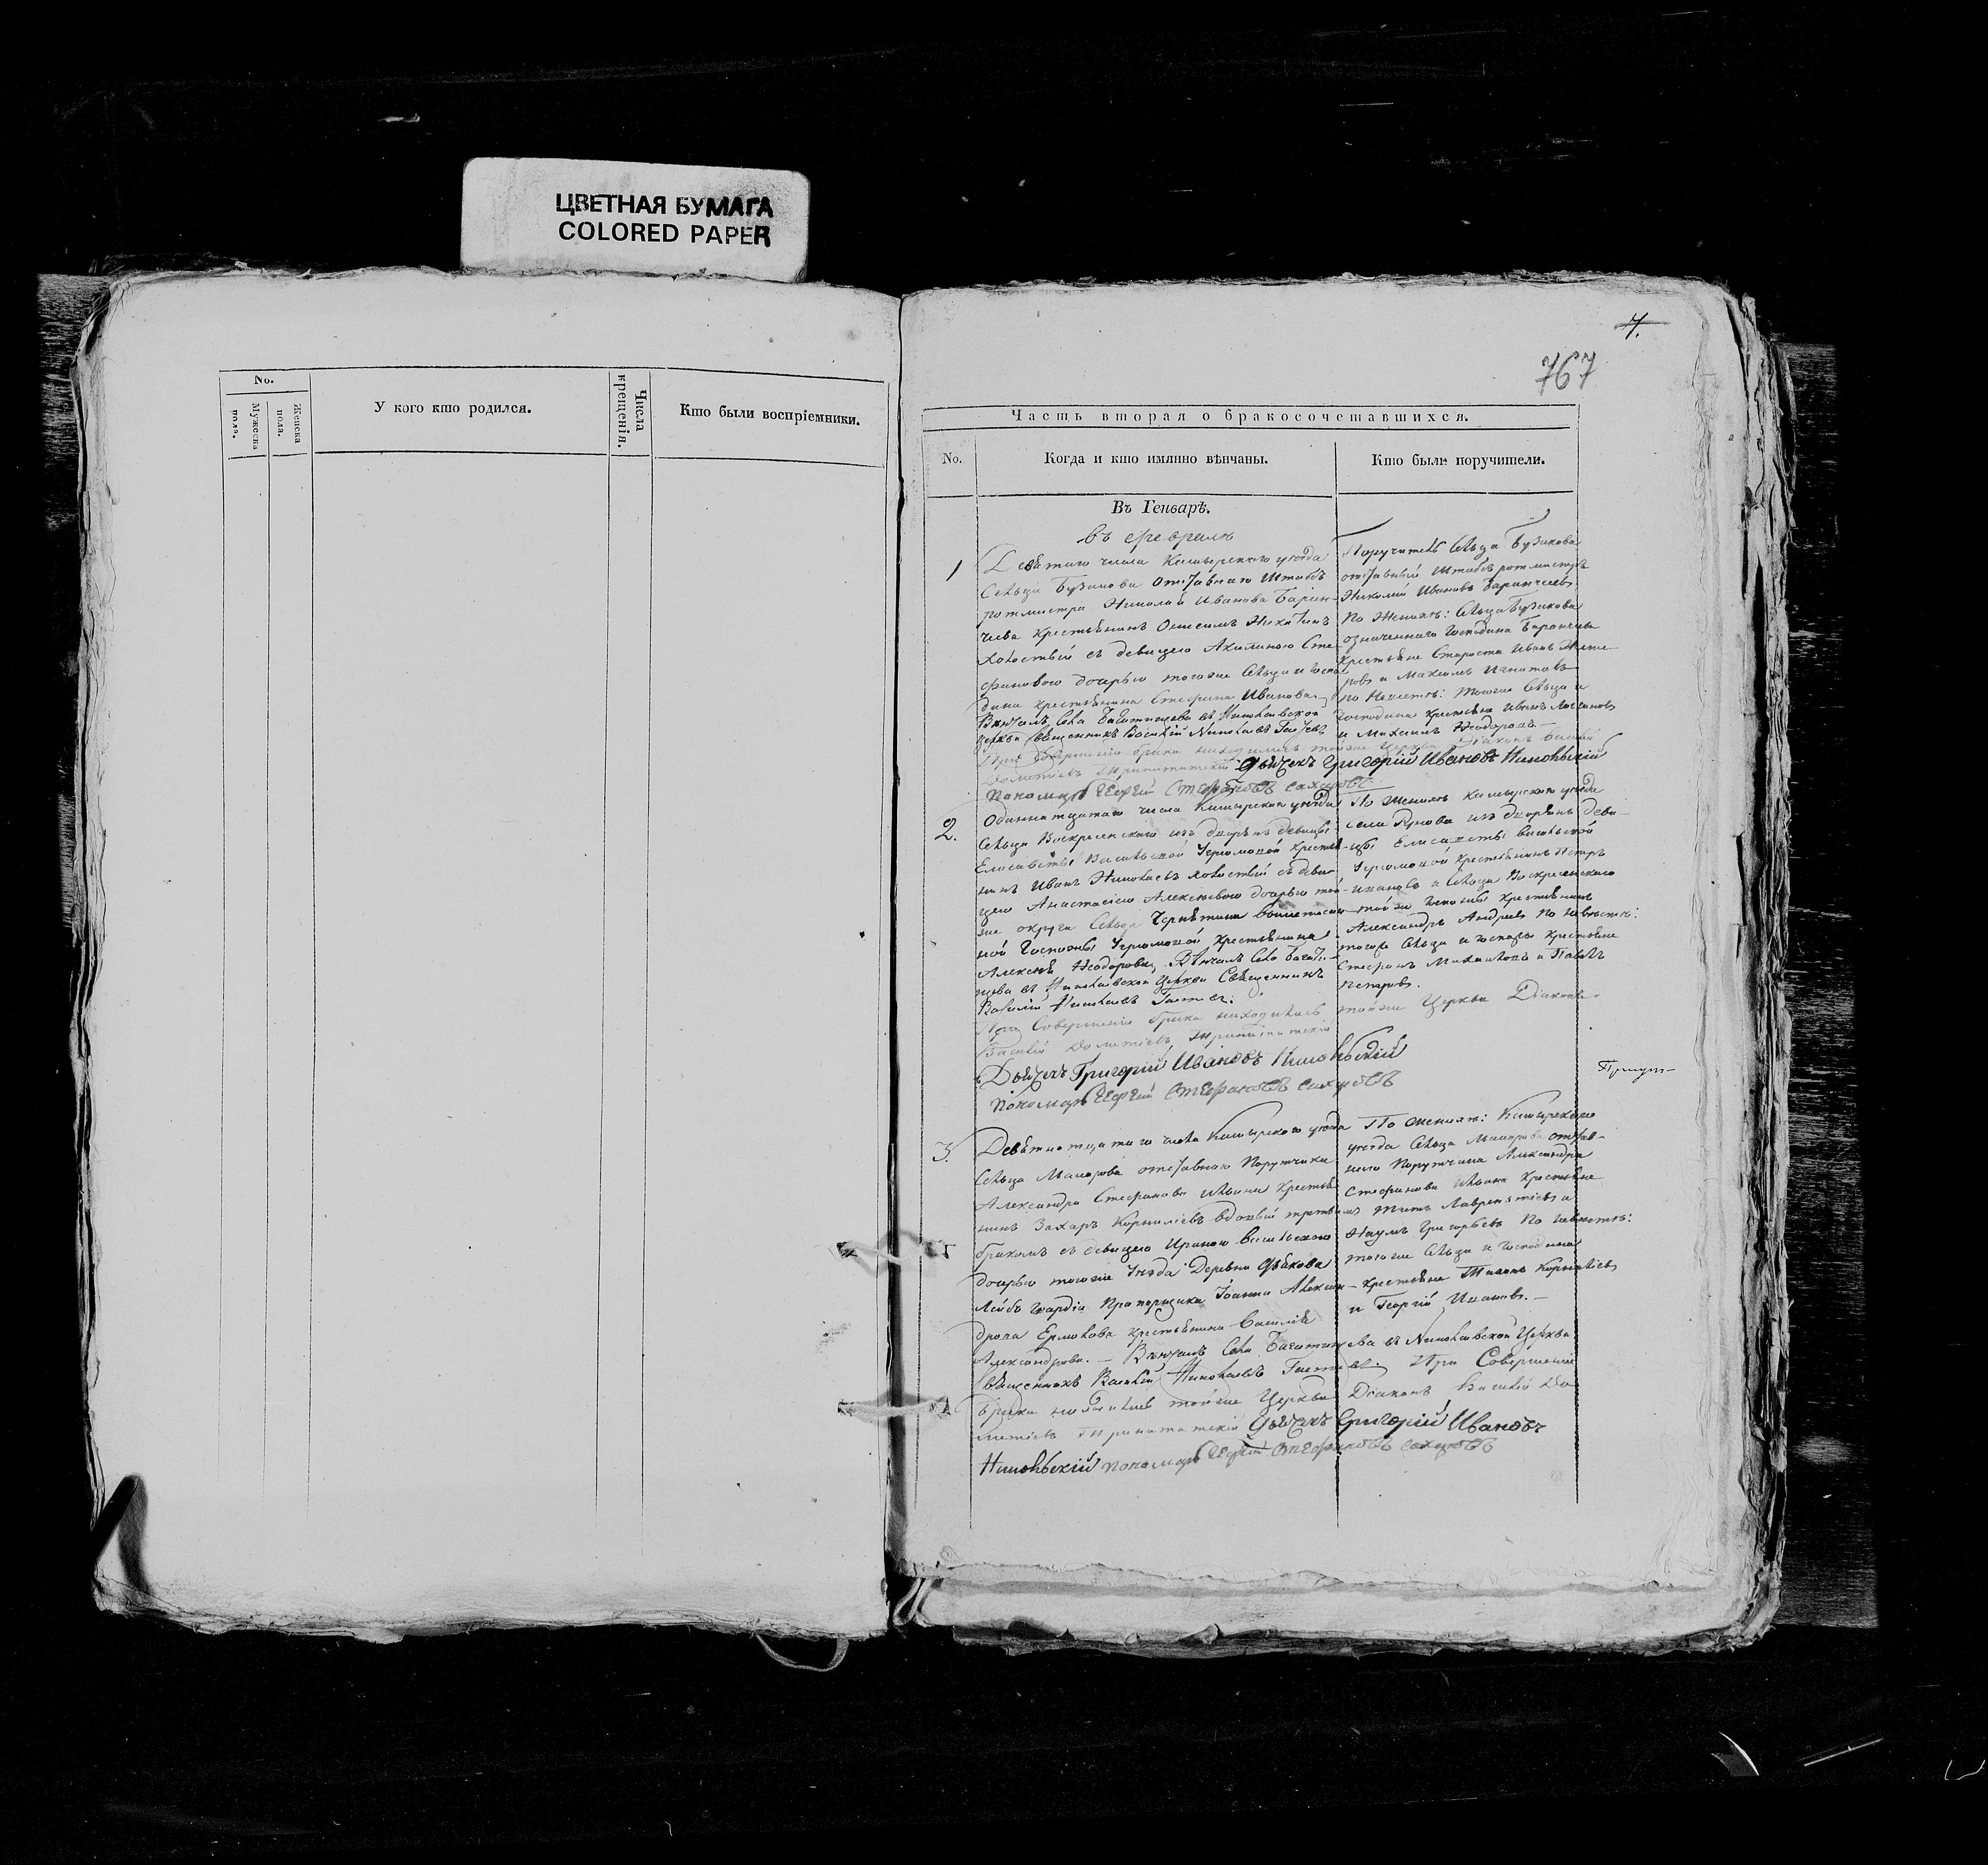 ЦВЕТНАЯ БУМАГА
COLORED PAPER
No.
Мужеска пола.
Женска пола.
У кого кто родился.
Числа крещенія.
Кто были воспріемники.
7.
767
Часть вторая о бракосочетавшихся.
No.
Когда и кто имянно вѣнчаны.
Кто были поручители.
Въ Генварѣ.
въ февралѣ
1
Девятаго числа Каширскаго уѣзда
Сельца Бузикова отставнаго Штабсъ
ротмистра Николая Иванова Баран-
чеева крестьянинъ
холостый съ девицею Акилиною Сте-
фановою дочерью тогоже Сельца и Госпо-
дина крестьянина Стефана Иванова
Вѣнчалъ Села Богатищева въ Николаевской
Церкви священникъ Василій Николаевъ
При Совершеніи брака находились тойже Церкви Діаконъ Василій
Дометіевъ Дьячекъ Григорій Ивановъ Никольскій
Пономарь Сергій Стефановъ Сахаровъ
Поручители Сельца Бузикова
отставный Штабсъ ротмистръ
Николай Ивановъ Баранчеевъ
По Женихѣ: Сельца Бузикова
означеннаго Господина Баранчеева
крестьяне Староста Иванъ
и Максимъ Игнатовъ
по Невѣстѣ: тогоже Сельца и
Господина крестьяне Иванъ
и Михаилъ Ѳеодоровъ
2.
Одиннатцатаго числа Каширскаго уѣзда
Сельца Воскресенскаго изъ дворянъ девицы
Елисаветы Васильевой крестья-
нинъ Иванъ Николаевъ холостый съ деви-
цею Анастасіею Алексѣевою дочерью той-
же округи Сельца
ной Госпожи крестьянина
Алексѣя Ѳеодорова Вѣнчалъ Села Богати-
щева въ Николаевской Церкви Священникъ
Василій Николаевъ
При Совершеніи брака находились тойже Церкви Діаконъ
Василій Дометіевъ
Дьячекъ Григорій Ивановъ Никольскій
Пономарь Сергій Стефановъ Сахаровъ
По Женихѣ Каширскаго уѣзда
села изъ дворянъ деви-
цы Елисаветы Васильевой
крестьянинъ Петръ
Ивановъ и Сельца Воскресенскаго
тойже Госпожи крестьянинъ
Александръ Андреевъ По невѣстѣ:
тогоже Сельца и Госпожи крестьяне
Стефанъ Михайловъ и Павелъ
Петровъ.
3.
Девятнатцатаго числа Каширскаго уѣзда
Сельца Макарова отставнаго Порутчика
Александра Стефанова Ильина крестья-
нинъ Захаръ Корниліевъ вдовый третьимъ
бракомъ съ девицею Ириною Васильевою
дочерью тогоже Уѣзда Деревни
Лейбъ гвардіи Прапорщика Іоанна Алексан-
дрова Ермолова крестьянина Василія
Александрова. — Вѣнчалъ Села Богатищева въ Николаевской Церкви
священникъ Василій Николаевъ При Совершеніи
брака находились тойже Церкви Діаконъ Василій До-
метіевъ Дьячекъ Григорій Ивановъ
Никольскій Пономарь Сергій Стефановъ Сахаровъ
По женихѣ: Каширскаго
уѣзда Сельца Макарова отстав-
наго Порутчика Александра
Стефанова Ильина крестьяне
Титъ Лаврентіевъ и
Наумъ Григорьевъ По невѣстѣ:
тогоже Сельца и Господина
крестьяне Корниліевъ
и Георгій Ивановъ. —